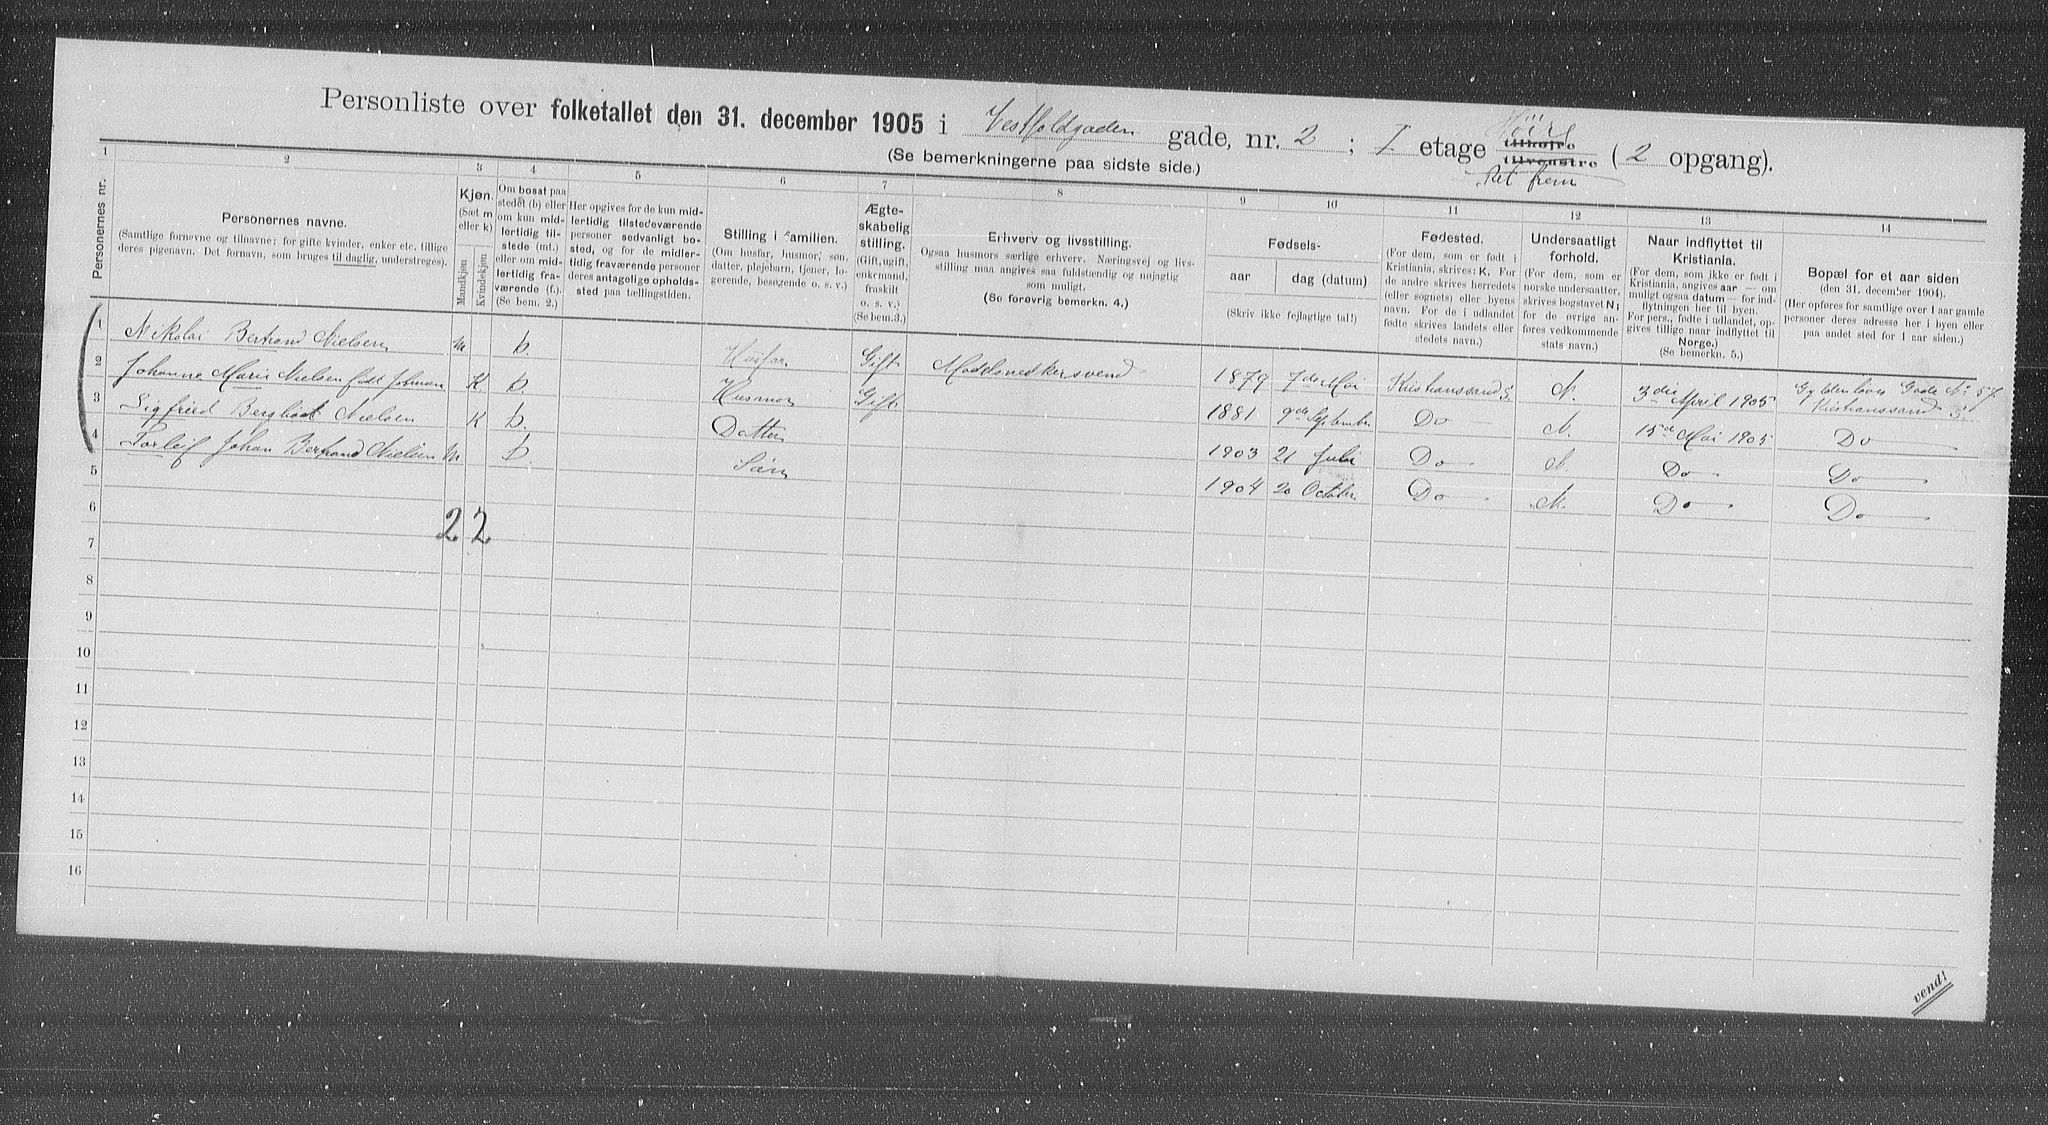 Personliste over folketallet den 31. december 1905 i Vestfoldgaden gade, nr. 2 ; I etage tilhøjre tilvenstre (2 opgang).
Høire
Ret frem
(Se bemerkningerne paa sidste side.)
1 2 3 4 5 6 7 8 9 10 11 12 13 14
Personernes nr.
Personernes navne.
(Samtlige fornavne og tilnavne; for gifte kvinder, enker etc. tillige
deres pigenavn. Det fornavn, som bruges til daglig, understreges).
Kjøn.
(Sæt m
eller k)
Mandkjøn
Kvindekjøn
Om bosat paa
stedet (b) eller
om kun mid-
lertidig til-
stede (mt.)
eller om mid-
lertidig fra-
værende (f.).
(Se bem. 2.)
Her opgives for de kun mid-
lertidig tilstedeværende
personer sedvanligt bo-
sted, og for de midler-
tidig fraværende personer
deres antagelige opholds-
sted paa tællingstiden.
Stilling i familien.
(Om husfar, husmor, søn,
datter, plejebarn, tjener, lo-
gerende, besøgende o. s. v.)
Ægte-
skabelig
stilling.
(Gift, ugift,
enkemand,
fraskilt
o. s. v.)
(Se bem. 3.)
Erhverv og livsstilling.
Ogsaa husmors særlige erhverv. Næringsvej og livs-
stilling maa angives saa fuldstændig og nøjagtig
som muligt.
(Se forøvrig bemerkn. 4.)
Fødsels-
aar
dag (datum)
(Skriv ikke fejlagtige tal!)
Fødested.
(For dem, som er født i
Kristiania, skrives: K. For
de andre skrives herredets
(eller sognets) eller byens
navn. For de i udlandet
fødte skrives landets eller
stedets navn.)
Undersaatligt
forhold.
(For dem, som er
norske undersaatter,
skrives bogstavet N;
for de øvrige an-
føres vedkommende
stats navn.)
Naar indflyttet til
Kristiania.
(For dem, som ikke er født i
Kristiania, angives aar — om
muligt ogsaa datum — for ind-
flytningen her til byen.
For pers., fødte i udlandet, op-
gives tillige naar indflyttet til
Norge.)
(Se bemerkn. 5.)
Bopæl for et aar siden
(den 31. december 1904).
(Her opføres for samtlige over 1 aar gamle
personer deres adresse her i byen eller
paa andet sted for 1 aar siden.)
1 Nikolai Bertrand Nielsen m b. Husfar Gift Møbelsnedkersvend 1879 7de Mai Kristianssand S. N. 3die April 1905 Gyldenløves Gade No 57 Kristianssand S
2 Johanne Marie Nielsen født K b. Husmor Gift 1881 9de September Do N. 15de Mai 1905 Do
3 Sigfried Bergliot Nielsen K b. Datter 1903 21 Juli Do N. Do Do
4 Torleif Johan Bertrand Nielsen m b. Søn 1904 20 October Do N. Do Do
5
6
2 2
7
8
9
10
11
12
13
14
15
16
vend!